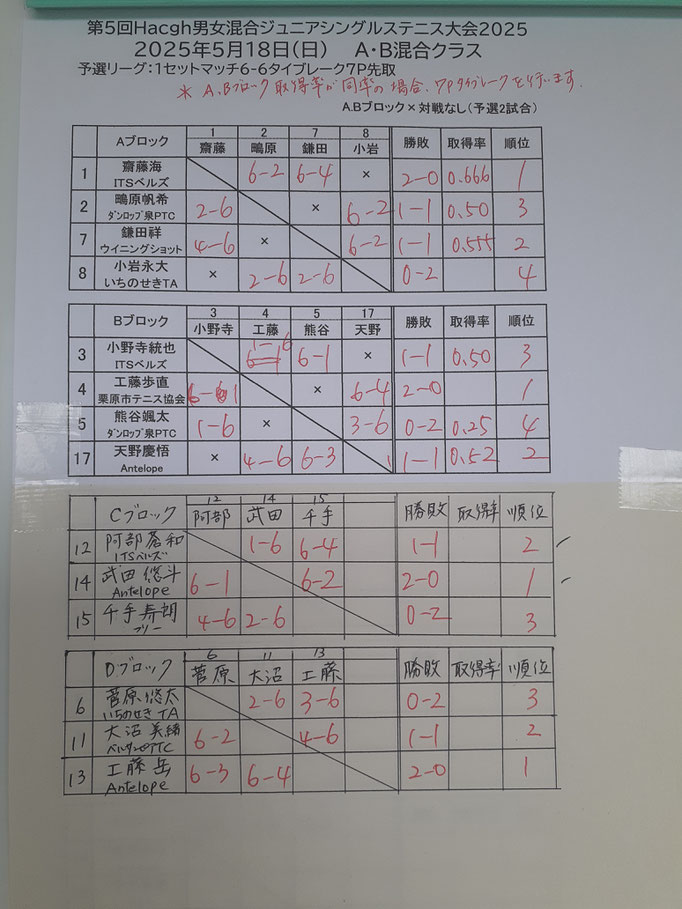 第5回Hacgh男女混合ジュニアシングルステニス大会2025
2025年5月18日(日) A・B混合クラス
予選リーグ:1セットマッチ6-6タイブレーク7P先取
* A.Bブロック取得率が同率の場合、7Pタイブレークを行います.
A.Bブロック×対戦なし(予選2試合)
Aブロック 1 齋藤 2 鴫原 7 鎌田 8 小岩 勝敗 取得率 順位
1 齋藤海 ITSベルズ 6-2 6-4 × 2-0 0.666 1
2 鴫原帆希 ダンロップ泉PTC 2-6 × 6-2 1-1 0.50 3
7 鎌田祥 ウイニングショット 4-6 × 6-2 1-1 0.555 2
8 小岩永大 いちのせきTA × 2-6 2-6 0-2 4
Bブロック 3 小野寺 4 工藤 5 熊谷 17 天野 勝敗 取得率 順位
3 小野寺統也 ITSベルズ 1-6 6-1 6-1 × 1-1 0.50 3
4 工藤歩直 栗原市テニス協会 6-1 × 6-4 2-0 1
5 熊谷颯太 ダンロップ泉PTC 1-6 × 3-6 0-2 0.25 4
17 天野慶悟 Antelope × 4-6 6-3 1-1 0.52 2
Cブロック 12 阿部 14 武田 15 千手 勝敗 取得率 順位
12 阿部蒼和 ITSベルズ 1-6 6-4 1-1 2
14 武田悠斗 Antelope 6-1 6-2 2-0 1
15 千手寿朗 フリー 4-6 2-6 0-2 3
Dブロック 6 菅原 11 大沼 13 工藤 勝敗 取得率 順位
6 菅原悠太 いちのせきTA 2-6 3-6 0-2 3
11 大沼美緒 PTC 6-2 4-6 1-1 2
13 工藤岳 Antelope 6-3 6-4 2-0 1